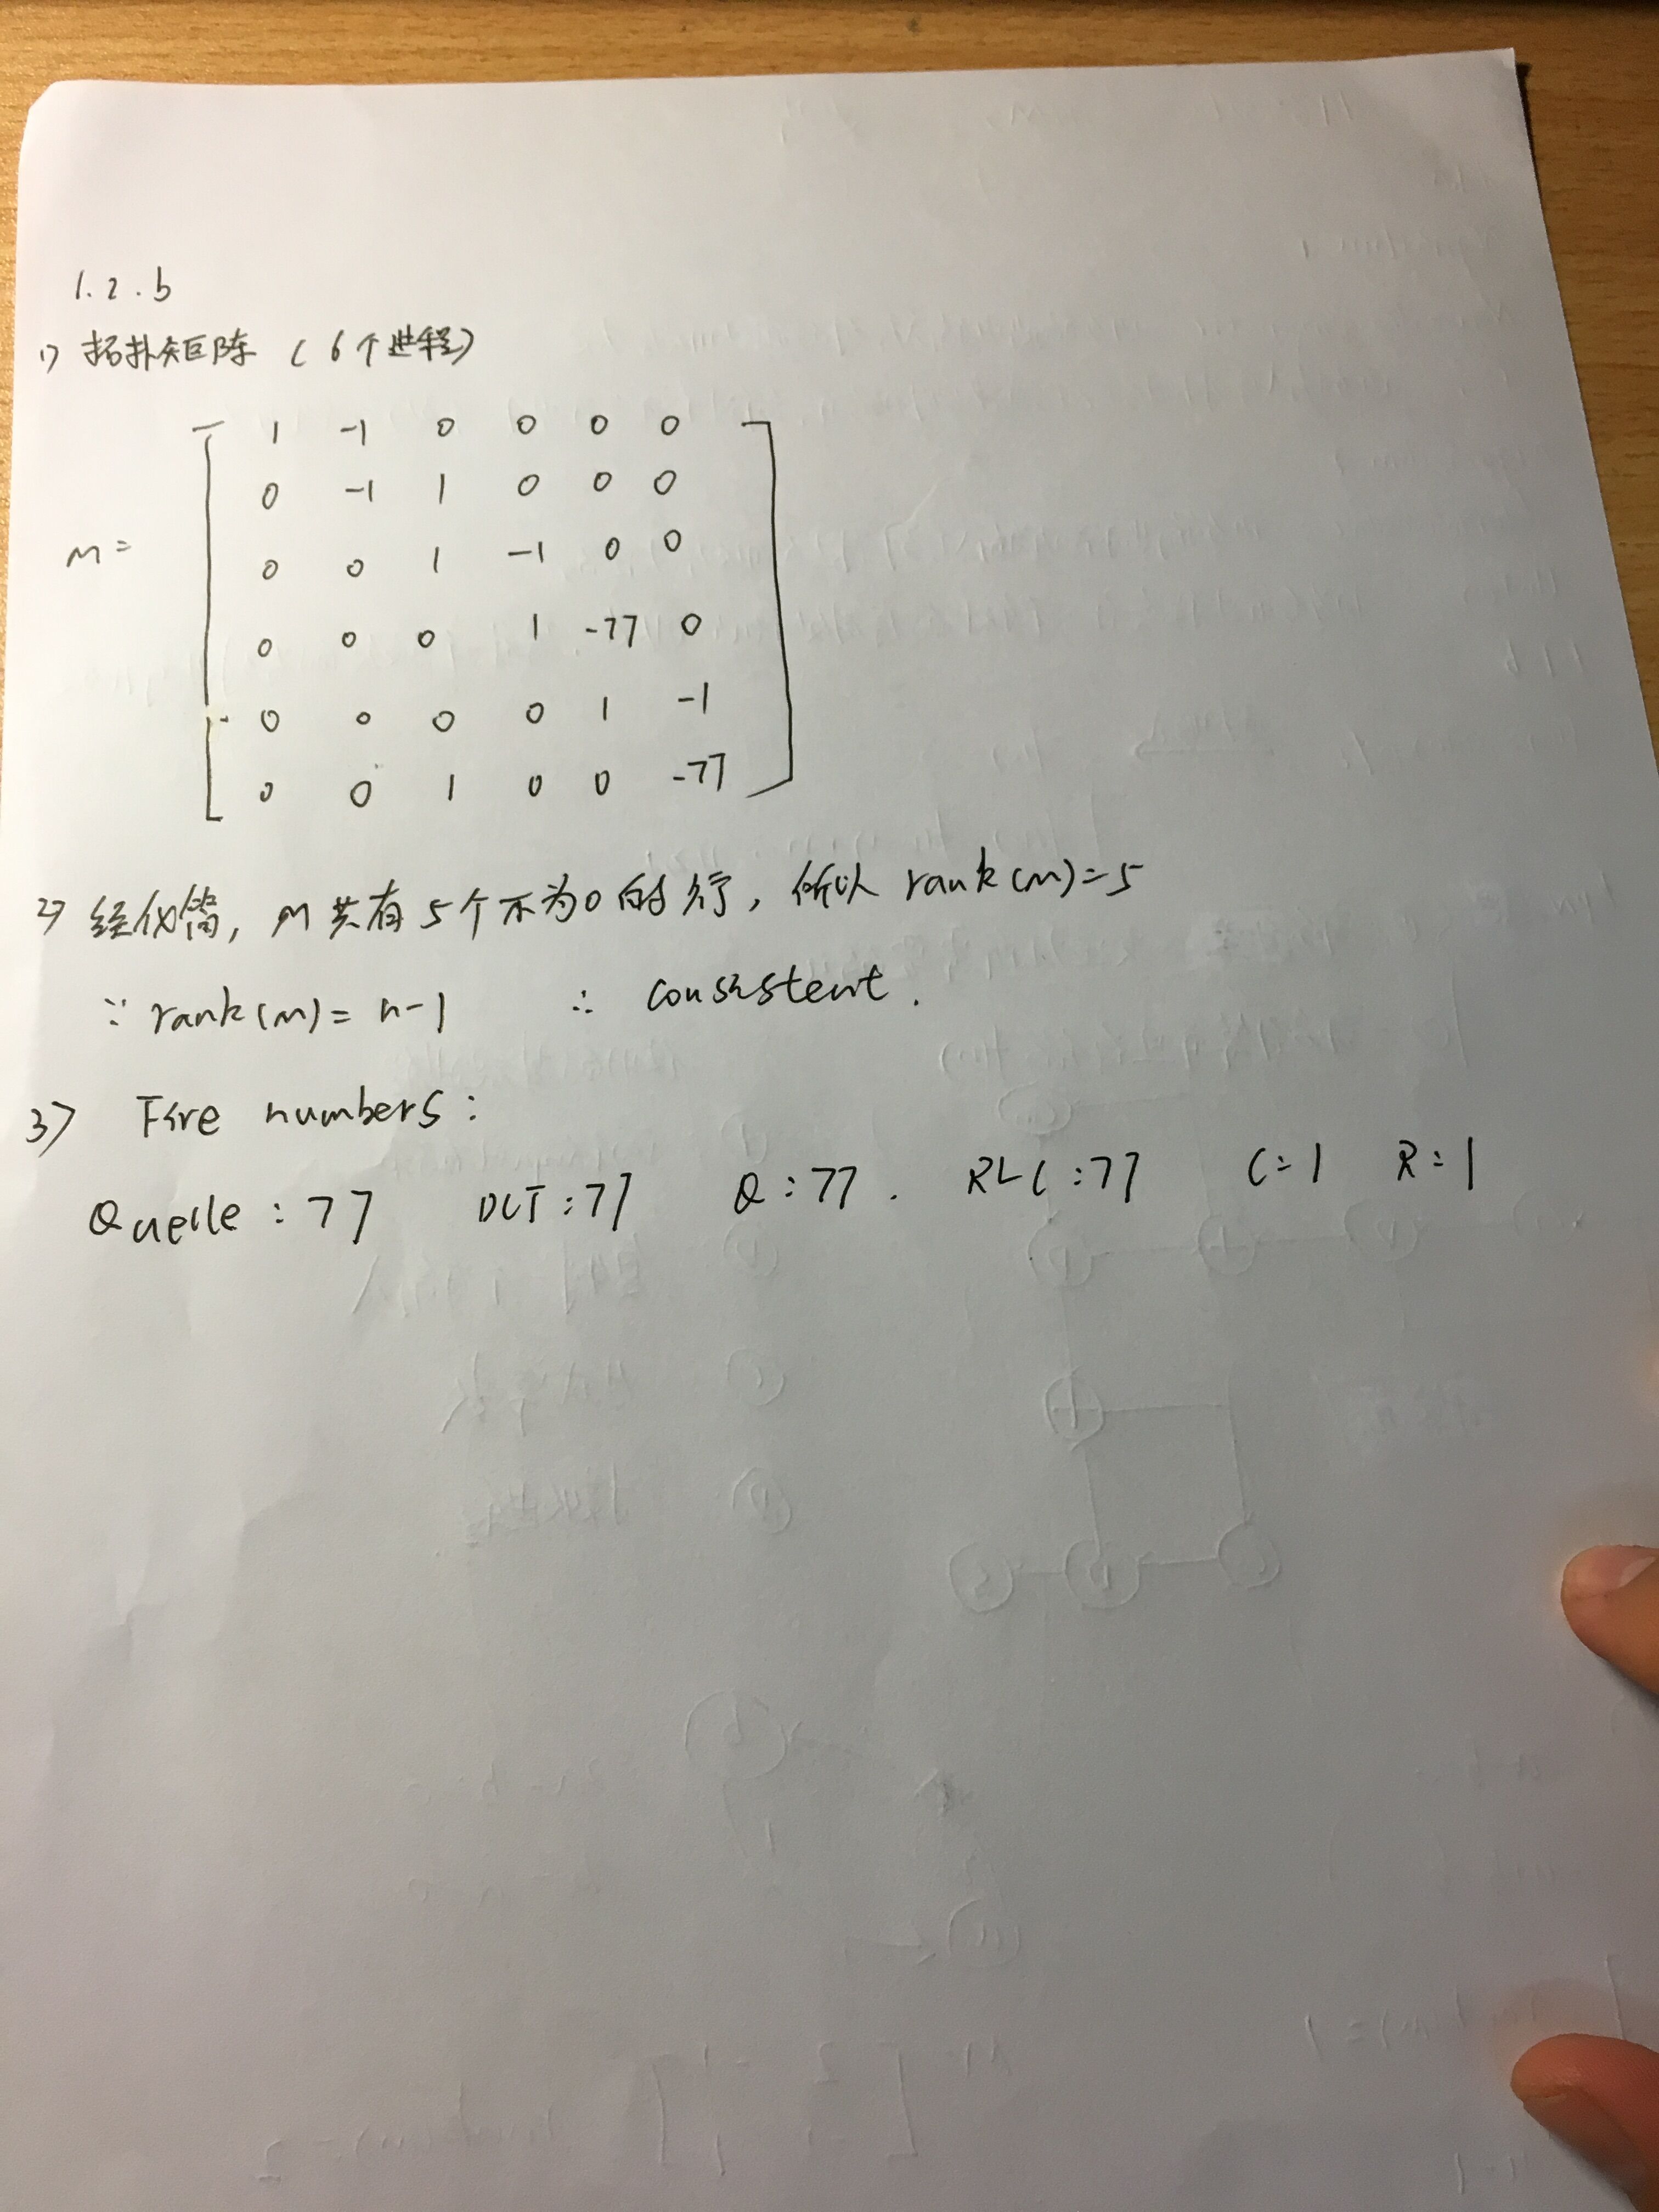 1.2.b
1) 拓扑矩阵 (6个进程)
1 -1 0 0 0 0
0 -1 1 0 0 0
M = 0 0 1 -1 0 0
0 0 0 1 -77 0
0 0 0 0 1 -1
0 0 1 0 0 -77
2) 经化简, M共有5个不为0的行, 所以 rank(M)=5
∵ rank(M) = n-1 ∴ consistent.
3) Fire numbers:
Quelle : 77 DCT : 77 Q : 77 . RLC : 77 C = 1 R = 1